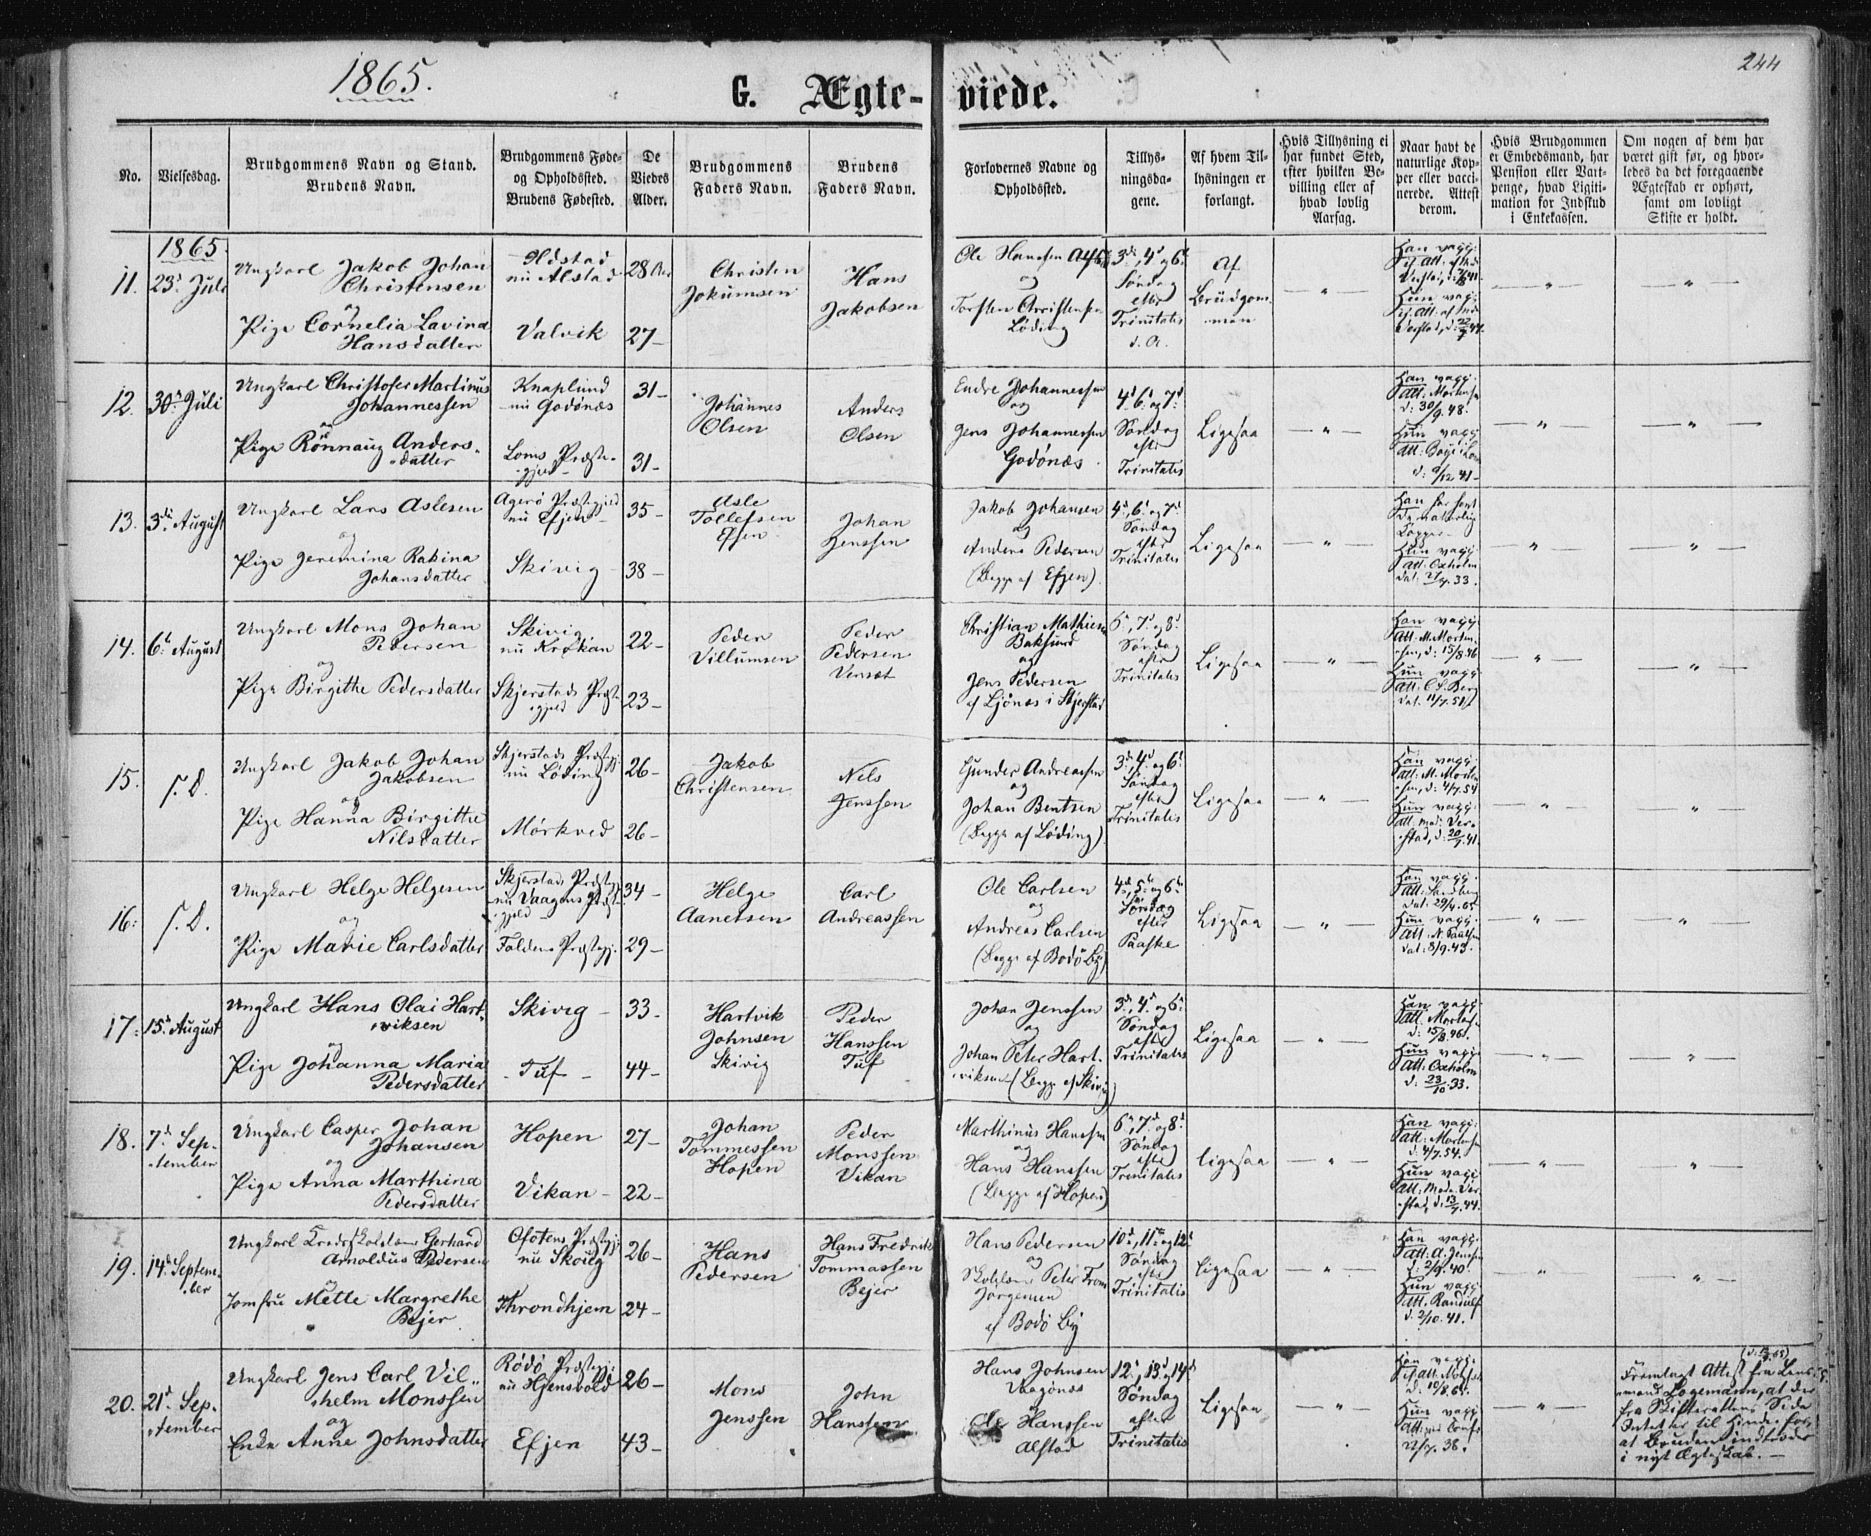 1865.
244
G. Ægte-viede.
No.
Vielsesdag.
Brudgommens Navn og Stand.
Brudens Navn.
Brudgommens Føde-
og Opholdssted.
Brudens Fødested.
De
Viedes
Alder.
Brudgommens
Faders Navn.
Brudens
Faders Navn.
Forlovernes Navne og
Opholdssted.
Tillys-
ningsda-
gene.
Af hvem Til-
lysningen er
forlangt.
Hvis Tillysning ei
har fundet Sted,
efter hvilken Be-
villing eller af
hvad lovlig
Aarsag.
Naar havt de
naturlige Kop-
per eller vacci-
nerede. Attest
derom.
Hvis Brudgommen
er Embedsmand, har
Pension eller Vart-
penge, hvad Ligiti-
mation for Indskud
i Enkekassen.
Om nogen af dem har
været gift før, og hvor-
ledes da det foregaaende
Ægteskab er ophørt,
samt om lovligt
Skifte er holdt.
1865
11. 23. Juli
Ungkarl Jakob Johan
Christensen
og
Pige Cornelia Lavina
Hansdatter
nu Alstad
Valvik
28
27 -
Christen
Jokumsen
Hans
Jakobsen
Ole Hansen
og
Torsten Christensen
Løding
3die, 4d og 6t
Søndag
efter
Trinitatis
d. A.
Af
Brudgom-
men
- " -
Han vacc.
Hun vacc.
- " -
- " -
12. 30. Juli
Ungkarl Christofer Martinus
Johannessen
og
Pige Rønnaug Anders-
datter
Knaplund
nu Godønes
Loms Præste-
gjeld -
31 -
31 -
Johannes
Olsen
Anders
Olsen
Endre Johannessen
og
Jens Johannessen
Godønes
4d 6t og 7d
Søndag
efter
Trinitatis
Ligesaa
- " -
Han vacc.
d: 30/9. 48.
Hun vacc.
d: 9/12 41 -
- " -
- " -
13. 3die August
Ungkarl Lars Aslesen
og
Pige Jeremina Rakina
Johansdatter
Agerø Præstegjeld
nu Efjen -
Skivig -
35 -
38 -
Asle
Tollefsen
Efjen
Johan
Jenssen
Jakob Johansen
og
Anders Pedersen
(Begge af Efjen)
4d, 6t og 7d
Søndag
efter
Trinitatis
Ligesaa
- " -
Han har havt
de naturlige
Kopper
Hun vacc.
att: Oxholm
- " -
- " -
14. 6t August
Ungkarl Mons Johan
Pedersen
og
Pige Birgithe Pedersdatter
Skivig
nu Krokan
Skjerstads Præste-
gjeld
22 -
23 -
Peder
Villumsen
Peder
Pedersen
Venset
Christian Mathisen
Baksund
og
Jens Pedersen
af Ljønes i Skjerstad
6t, 7d og 8d
Søndag
efter
Trinitatis
Ligesaa
- " -
Han vacc.
att: M. Morten-
sen, d: 15/8. 46
Hun vacc.
att: C. S. Berg
dat. 11/7. 51
- " -
- " -
15. S. D.
Ungkarl Jakob Johan
Jakobsen
og
Pige Hanna Birgithe
Nilsdatter
Skjerstads Præstegj.
nu Løding
Mørkved
26 -
26 -
Jakob
Christensen
Nils
Jenssen
Gunder Andreassen
og
Johan Bentsen
(Begge af Løding)
3die, 4d og 6t
Søndag
efter
Trinitatis
Ligesaa
- " -
Han vacc.
att: M. Morten-
sen, d: 4/7. 54
Hun vacc.
att: Mad: Ver-
stad, d: 20/7. 41.
- " -
- " -
16. S. D.
Ungkarl Helge Helgesen
og
Pige Marie Carlsdatter
Skjerstads Præstegj.
nu Vaagens Præste-
gjeld
Foldens Præstegj.
34 -
29 -
Helge
Aanetsen
Carl
Andreassen
Ole Carlsen
og
Andreas Carlsen
(Begge af Bodø By)
4d, 5t og 6t
Søndag
efter
Paaske
Ligesaa
- " -
Han vacc.
att: Sandberg
dat: 29/4. 65
Hun vacc.
dat: 8/9. 43.
- " -
- " -
17. 15d August
Ungkarl Hans Olai Hart-
viksen
og
Pige Johanna Maria
Pedersdatter
Skivig -
Tuf -
33. -
44 -
Hartvik
Johnsen
Skivig
Peder
Hanssen
Tuf
Johan Jenssen
og
Johan Peter Hart-
viksen (Begge af Skivig)
3die, 4d og 6t
Søndag
efter
Trinitatis
Ligesaa
- " -
Han vacc.
d: 15/8. 46.
Hun vacc.
att: Oxholm
d: 23/10. 33.
- " -
- " -
18. 7d Sep-
tember
Ungkarl Casper Johan
Johansen
og
Pige Anna Marthina
Pedersdatter
Hopen
Vikan -
27 -
22 -
Johan
Tommessen
Hopen
Peder
Monssen
Vikan
Marthinus Hanssen
og
Hans Hanssen
(Begge af Hopen)
6t, 7d og 8d
Søndag
efter
Trinitatis
Ligesaa
- " -
Han vacc.
att: Mortensen
d: 4/7. 54.
Hun vacc.
att: Mad. Ver-
stad, d: 13/7. 44.
- " -
- " -
19. 14d Septem-
ber
Ungkarl Gerhard
Arnoldus Pedersen
og
Jomfru Mette Margrethe
Bejer
Ofotens Præstegj.
nu Skovig
Throndhjem
26 -
24 -
Hans
Pedersen
Hans Fredrik
Tommassen
Bejer
Hans Pedersen
og
Peter
Jørgensen
af Bodø By
10d, 11te og 12t
Søndag
efter
Trinitatis
Ligesaa
- " -
Han vacc.
att. A. Jensen
d: 2/9. 40.
Hun vacc.
att. Randulf
d. 2/10. 41.
- " -
- " -
20. 21d Sep-
tember
Ungkarl Jens Carl Vil-
helm Monssen
og
Enke Anne Johnsdatter
Rødø Præstegj:
nu Hjensvold
Efjen
26 -
43 -
Mons
Jenssen
John
Hanssen
Hans Johnsen
Vaagønes
og
Ole Hanssen
Alstad
12t, 13d og 14d
Søndag
efter
Trinitatis
Ligesaa
- " -
Han vacc.
d. 10/8. 65.
Hun vacc.
- " -
Fremlagt Attest fra Lens-
mand Logemann, at der
fra Skifterettens Side
Intet er til Hinder for,
at Bruden indtræder
i nyt Ægteskab. -